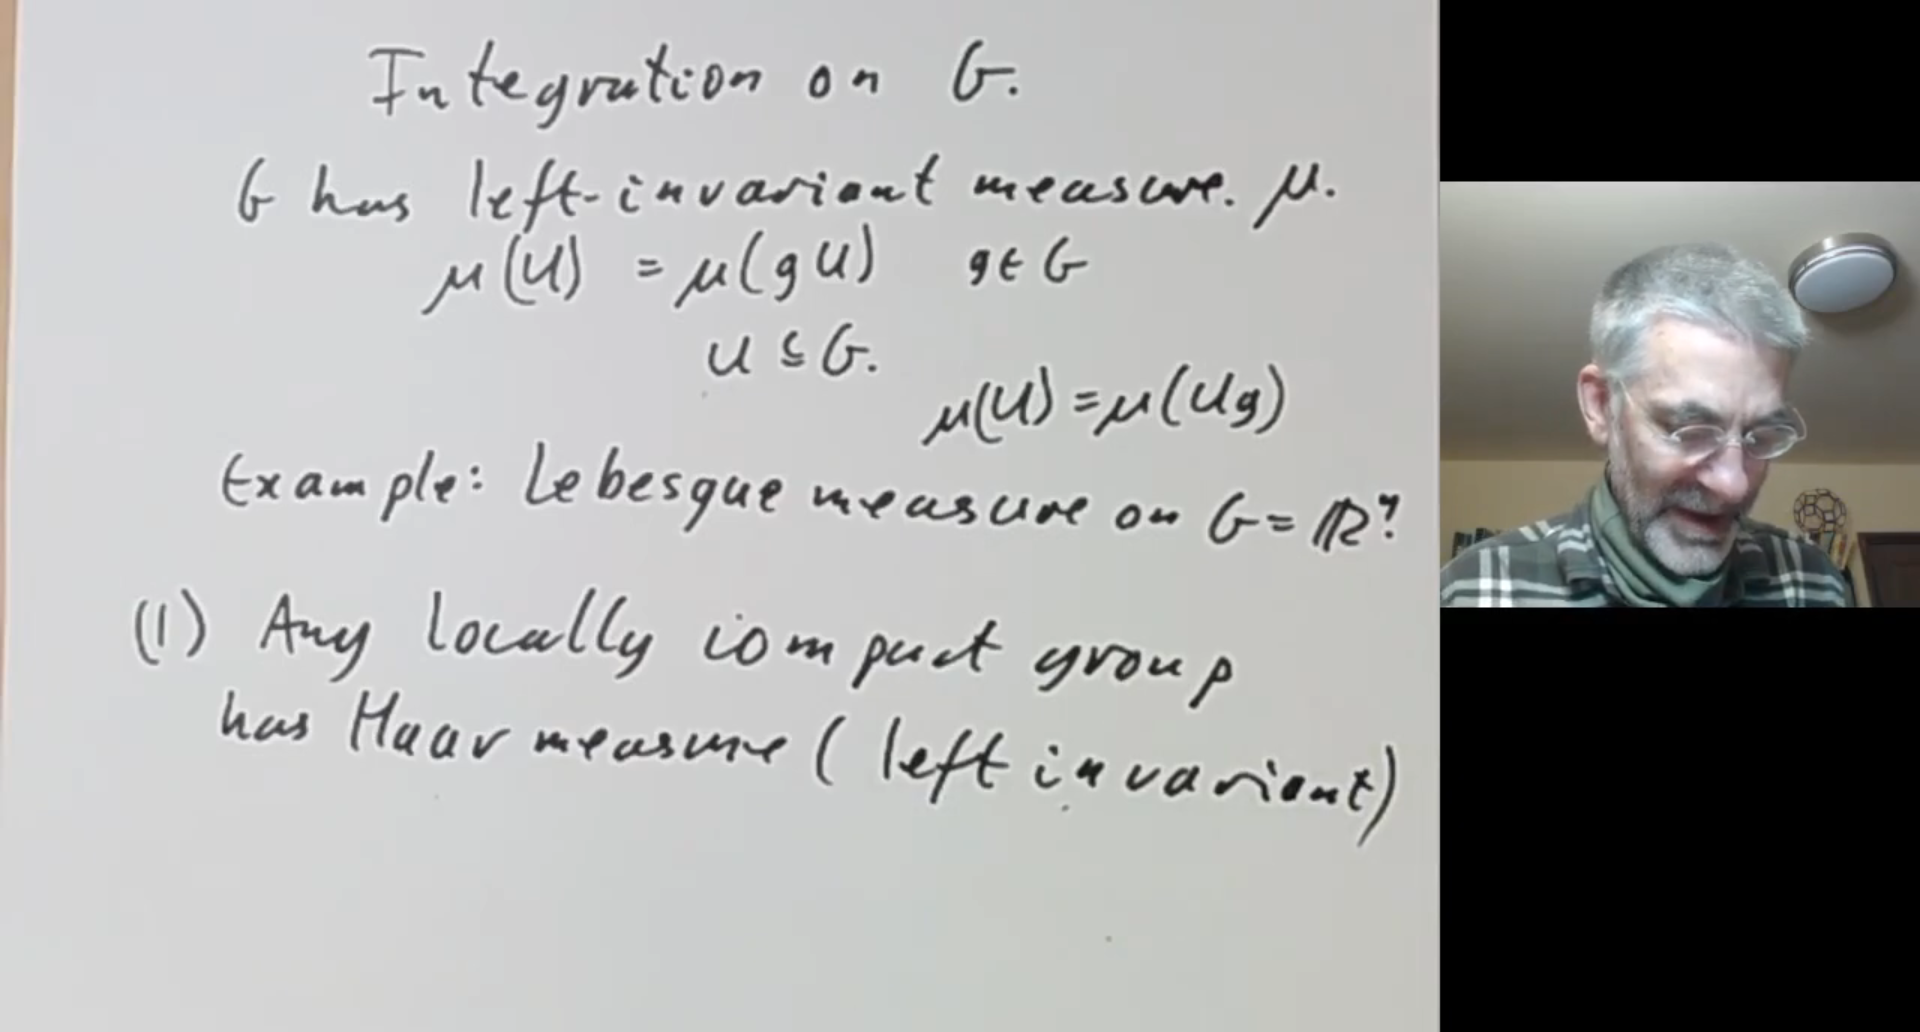 Integration on G.
G has left-invariant measure. μ.
μ(U) = μ(gU) g∈G
U ⊆ G.
μ(U) = μ(Ug)
Example: Lebesgue measure on G = ℝⁿ.
(1) Any locally compact group
has Haar measure (left invariant)